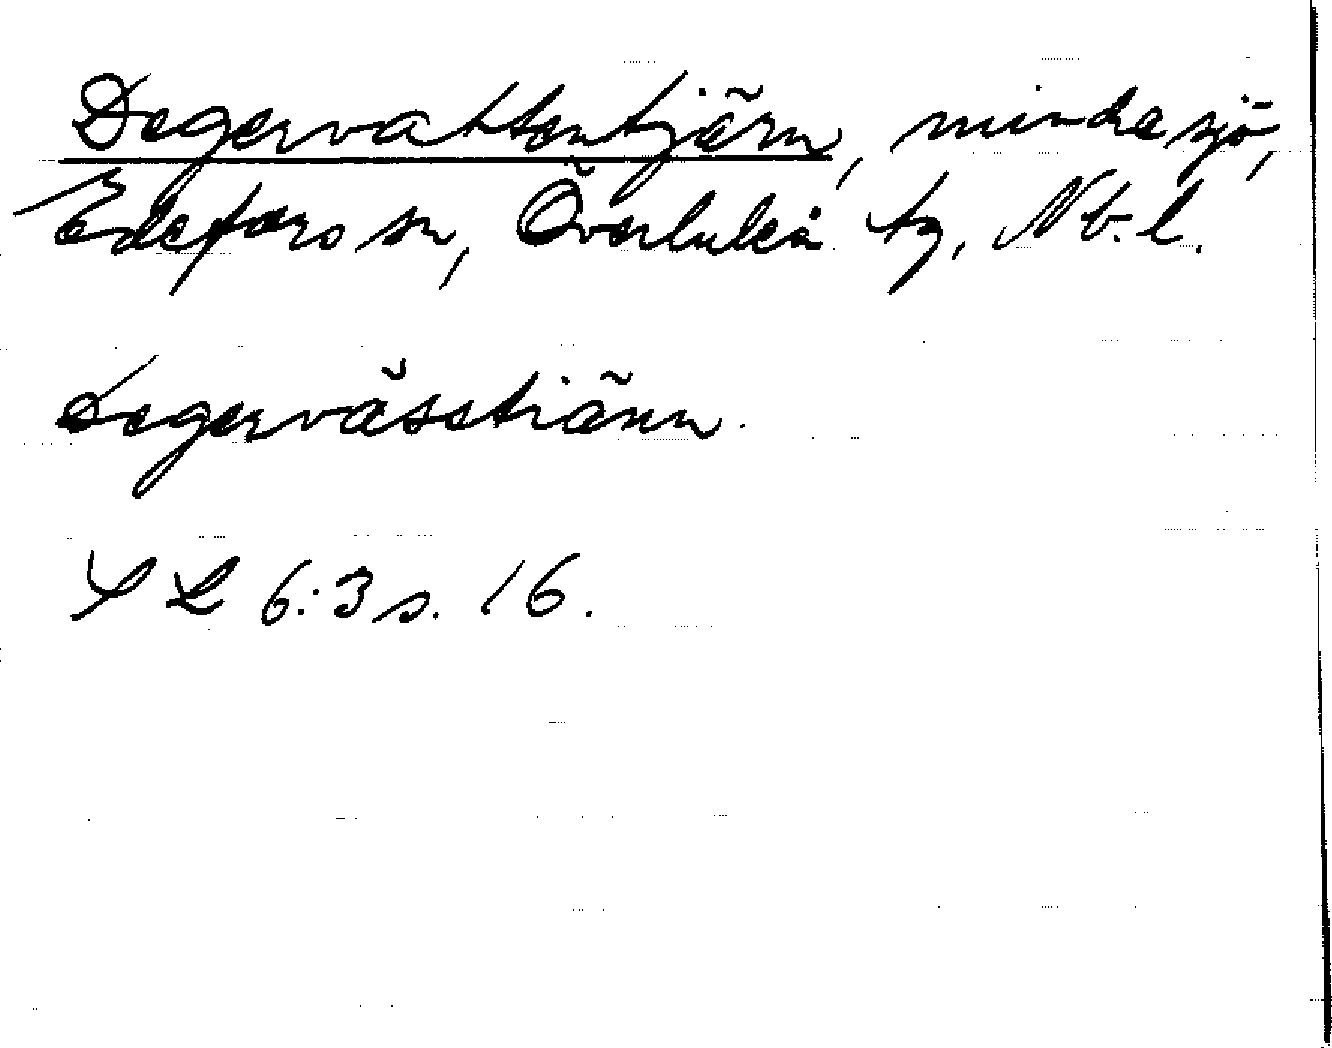 Degervattentjärn, mindre sjö,
Edefors sn, Överluleå tg, Nb. l.
Degervässtiänn.
SL 6:3 s. 16.